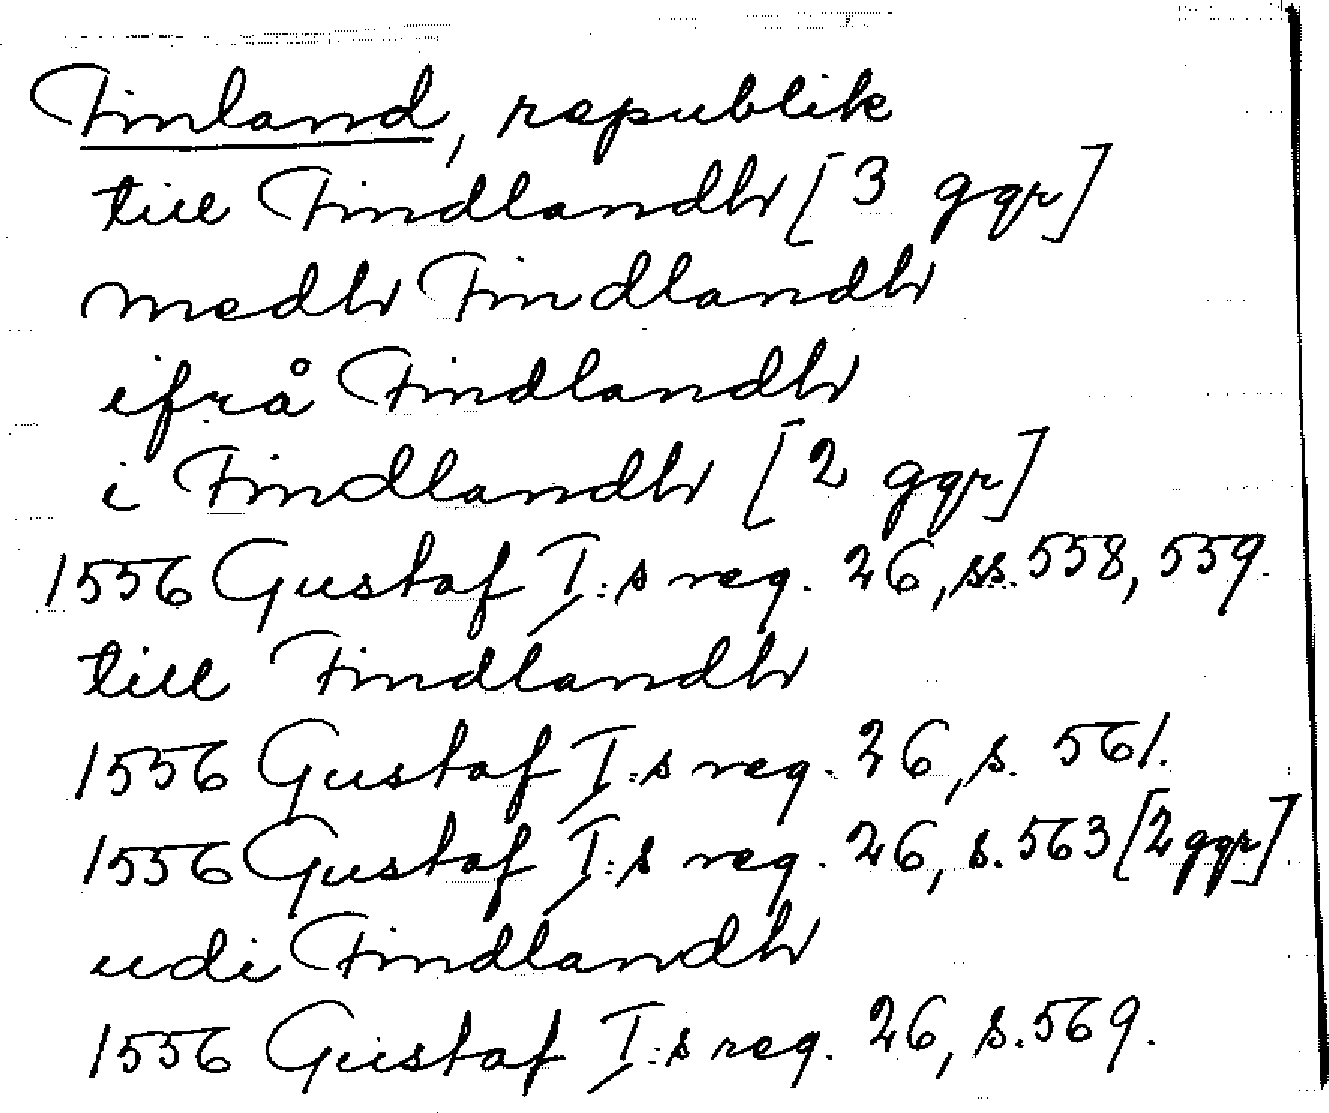 Finland, republik
till Findlandh [3 ggr]
medh Findlandh
ifrå Findlandh
i Findlandh [2 ggr]
1556 Gustaf I:s reg. 26, ss. 558, 559.
till Findlandh
1556 Gustaf I:s reg. 26, s. 561.
1556 Gustaf I:s reg. 26, s. 563 [2 ggr]
udi Findlandh
1556 Gustaf I:s reg. 26, s. 569.